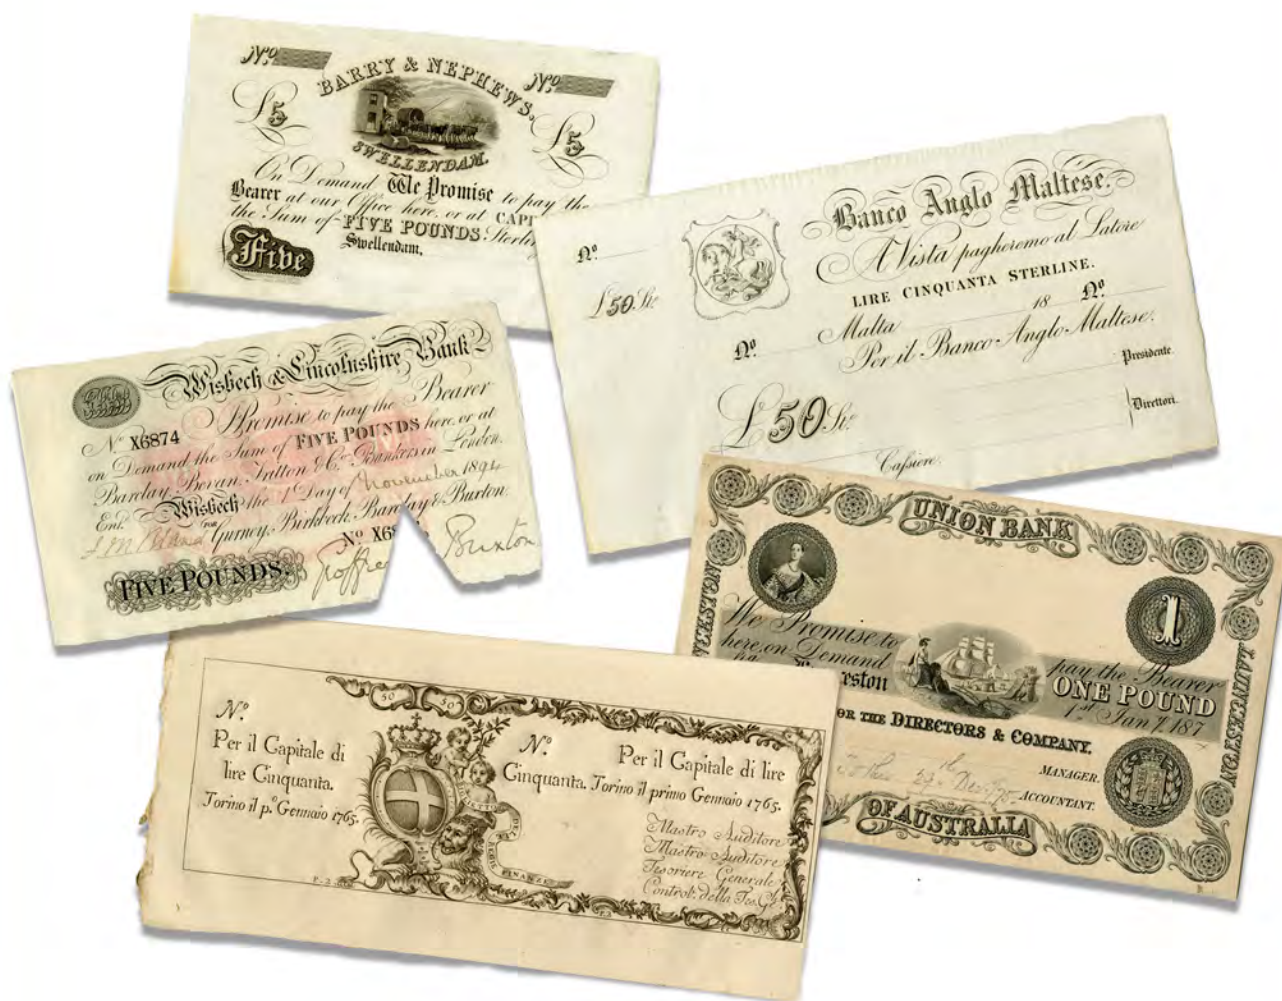 Nº Nº
BARRY & NEPHEWS,
£5 £5
SWELLENDAM.
On Demand We Promise to pay the
Bearer at our Office here, or at
the Sum of FIVE POUNDS
Five
Swellendam,
Banco Anglo Maltese.
Nº
A Vista pagheremo al Latore
£50 Stε
LIRE CINQUANTA STERLINE.
Malta 18 Nº
Nº
Per il Banco Anglo Maltese.
Presidente.
£50 Stε
Direttori.
Cassiere.
Wisbech & Lincolnshire Bank
Nº X6874 I Promise to pay the Bearer
on Demand the Sum of FIVE POUNDS here, or at
Barclay, Bevan, Tritton & Cº Bankers in London.
Wisbech the 1 Day of November 1894
Entᵈ FOR Gurney, Birkbeck, Barclay & Buxton.
Nº X6
FIVE POUNDS.
Buxton
UNION BANK
LAUNCESTON
1
We Promise to pay the Bearer
here, on Demand ONE POUND
1st Jany 187
THE DIRECTORS & COMPANY.
MANAGER.
ACCOUNTANT.
OF AUSTRALIA
50 50
Nº.
Per il Capitale di
lire Cinquanta.
Torino il pº Gennaio 1765.
Nº. Per il Capitale di lire
Cinquanta. Torino il primo Gennaio 1765.
Mastro Auditore
Mastro Auditore
Tesoriere Generale
Control. della Tes. Gle
FINANZE